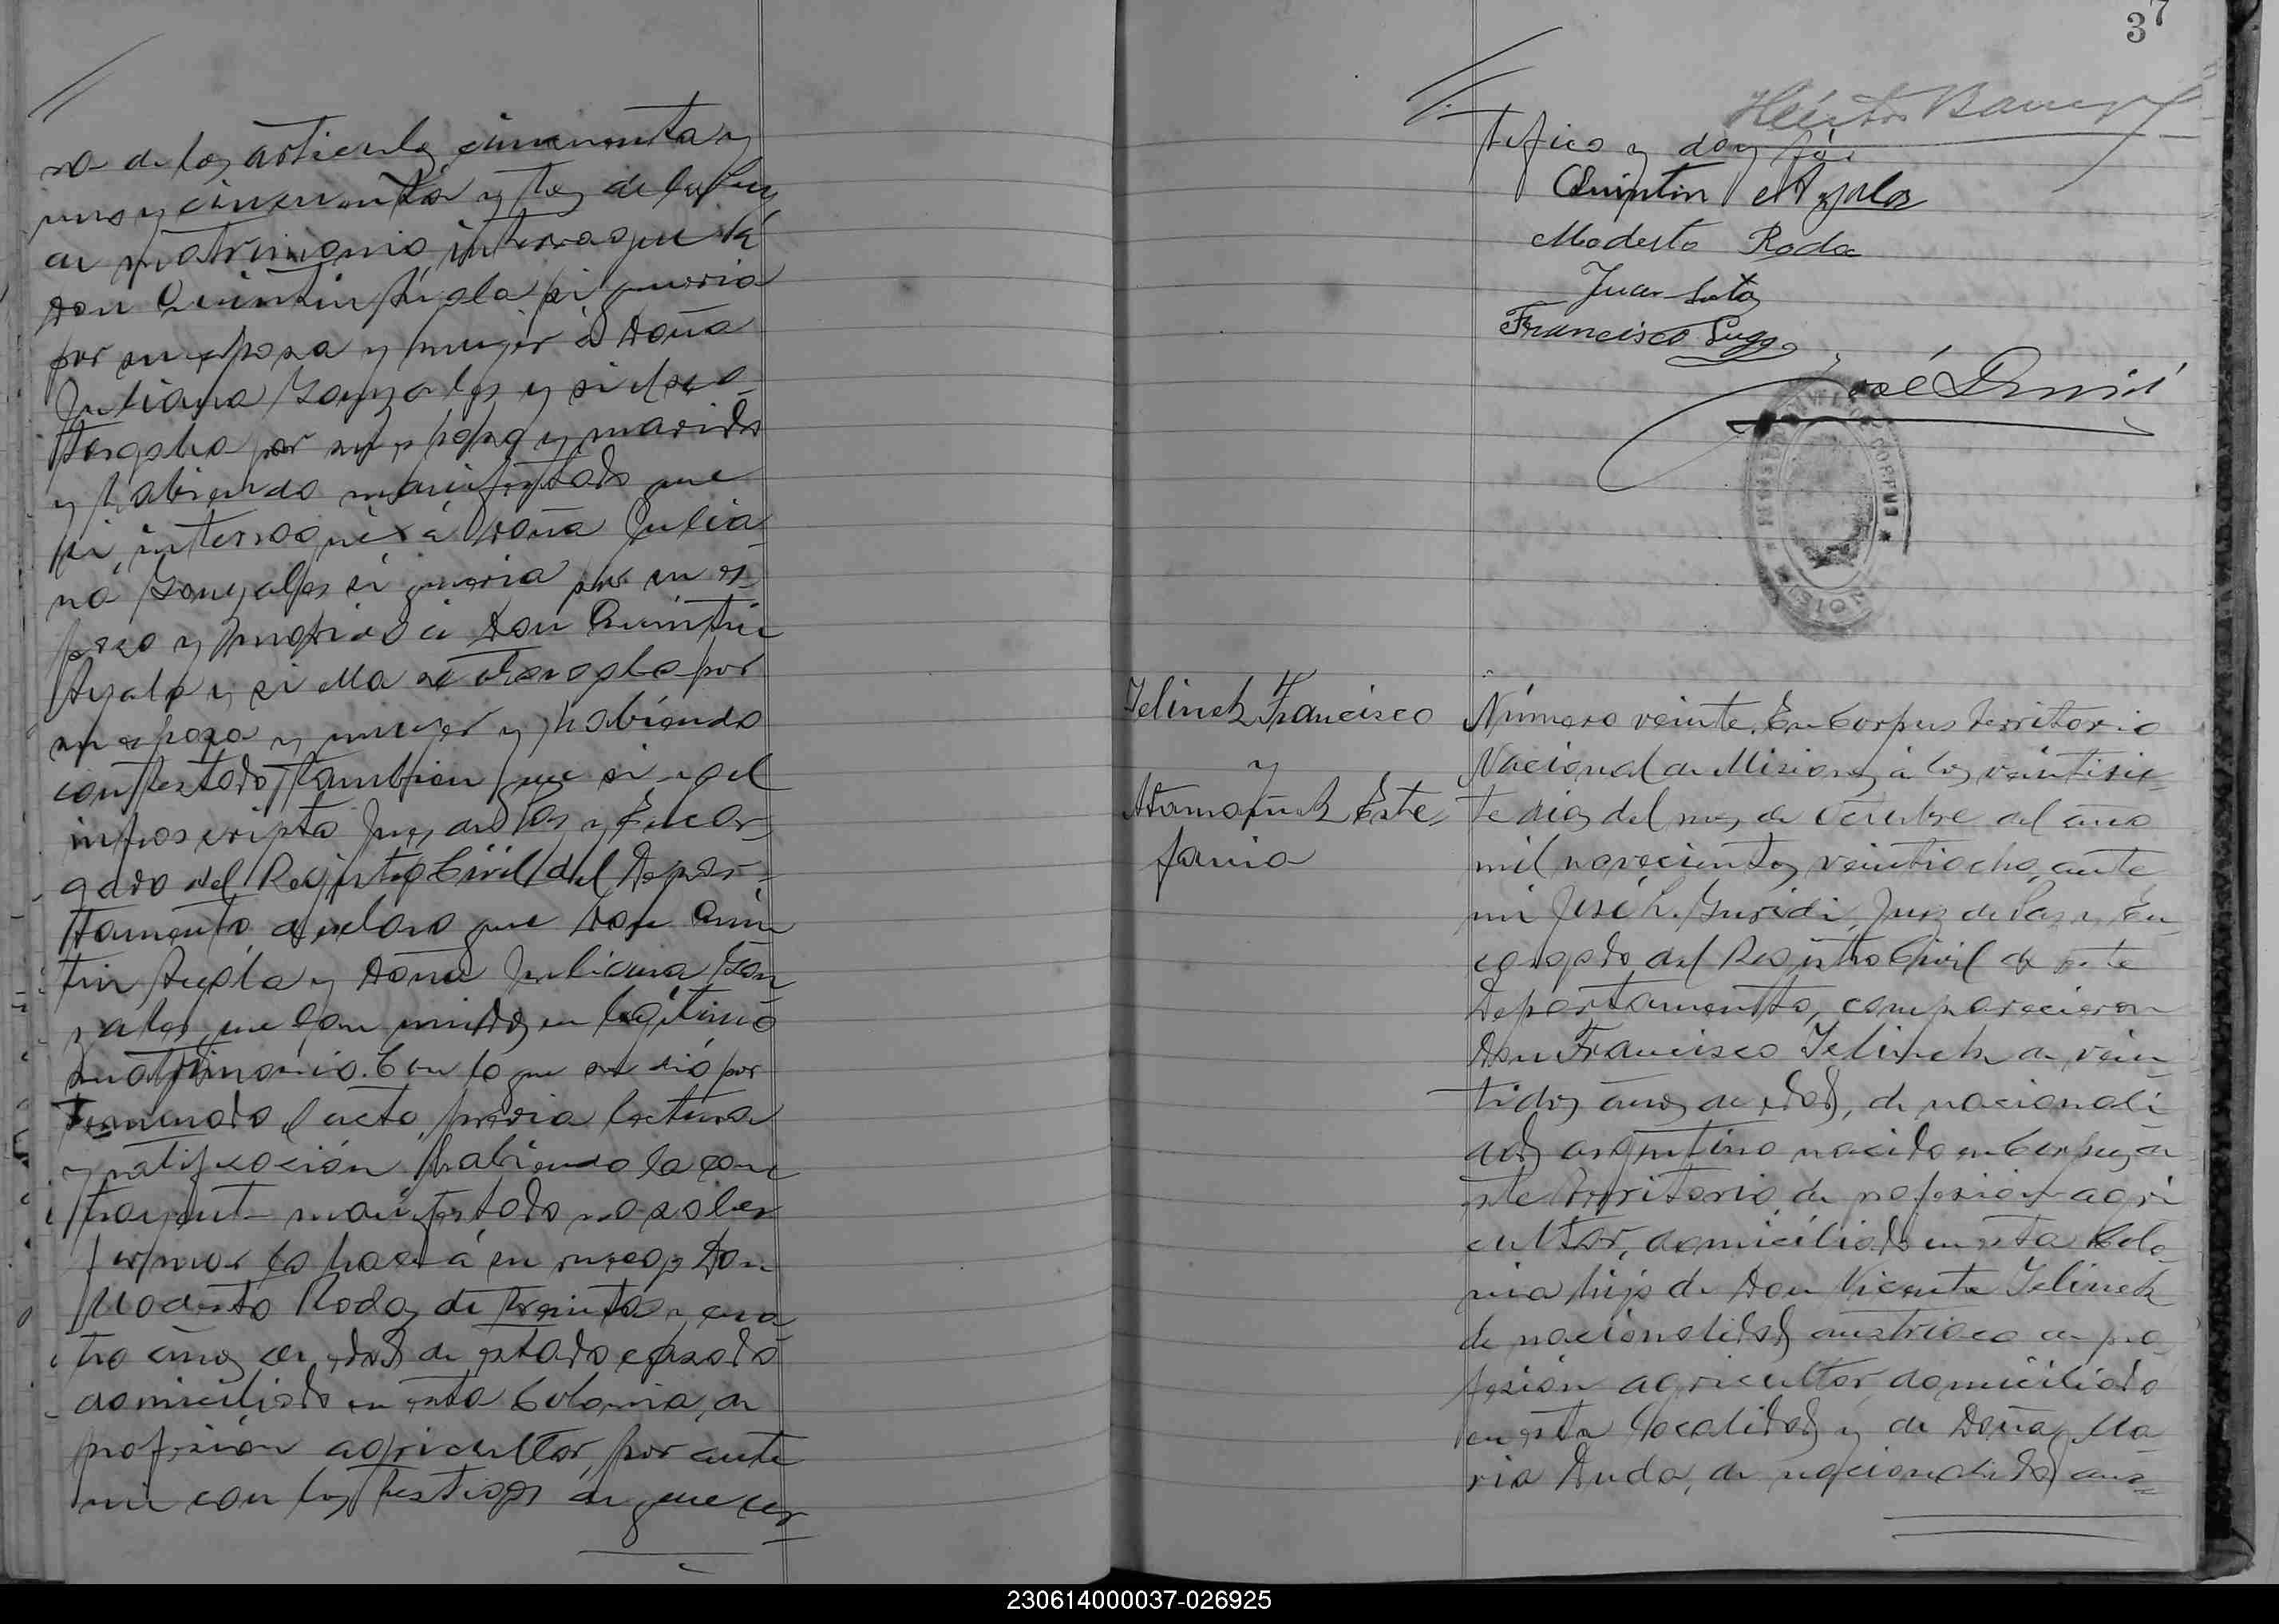 ro de los articulos cincuenta y
uno y cincuenta y tres de la Ley
de matrimonio interrogué á
Don Quintin Ayala si queria
por su esposa y mujer á Doña
Juliana Gonzales y si el se o
torgaba por su esposo y marido
y habiendo manifestado que
si, interrogué á Doña Julia
na Gonzales si queria por su es-
poso y marido á Don Quintin
Ayala y si ella se otorgaba por
su esposa y mujer y habiendo
contestado tambien que si, el
infrascripto Juez de Paz y Encar-
gado del Registro Civil del Depar-
tamento declaro que Don Quin
tin Ayala y Doña Juliana Gon
zales quedan unidos en legitimo
matrimonio. Con lo que se dió por
terminado el acto, previa lectura
y ratificación habiendo la con
trayente manifestado no saber
firmar lo hará á su ruego Don
Modesto Roda, de treinta y cua
tro años de edad de estado casado
domiciliado en esta Colonia, de
profesión agricultor, por ante
mi con los testigos de que cer
37
tifico y doy fé.
Quintin Ayala
Modesto Roda
Juan Soto
Francisco Lugo
José
REGISTRO CIVIL CORPUS
MISIONES
Jelinek Francisco
y
Este-
fania
Número veinte. En Corpus Territorio
Nacional de Misiones á los veintisie-
te dias del mes de Octubre del año
mil novecientos veintiocho, ante
mi José L. Guridi, Juez de Paz y En-
cargado del Registro Civil de este
Departamento, comparecieron
Don Francisco Jelinek de vein-
tidos años de edad, de nacionali
dad argentino nacido en Corpus, de
este Territorio, de profesion agri
cultor, domiciliado en esta Colo
nia hijo de Don Vicente Jelinek
de nacionalidad austriaco de pro
fesión agricultor, domiciliado
en esta localidad y de Doña Ma-
ria Duda, de nacionalidad aus-
230614000037-026925